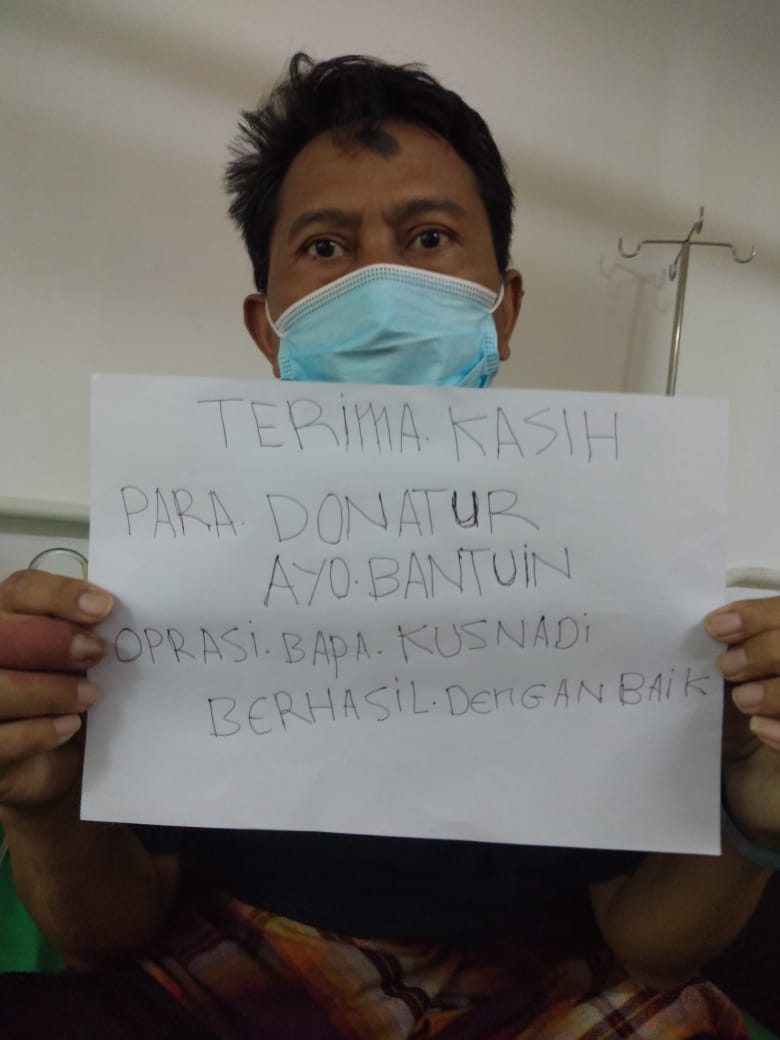 TERIMA. KASIH
PARA. DONATUR
AYO. BANTUIN
OPRASI. BAPA. KUSNADI
BERHASIL. DENGAN BAIK